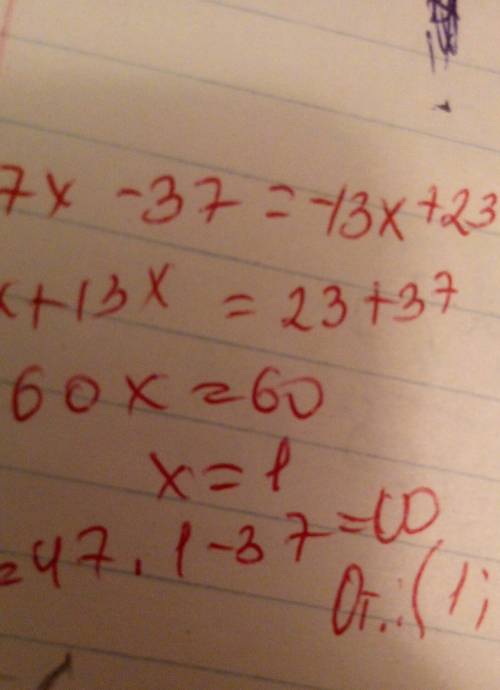 7x - 37 = -13x + 23
x + 13x = 23 + 37
60x = 60
x = 1
= 47 . 1 - 37 = 10
От.: (1;